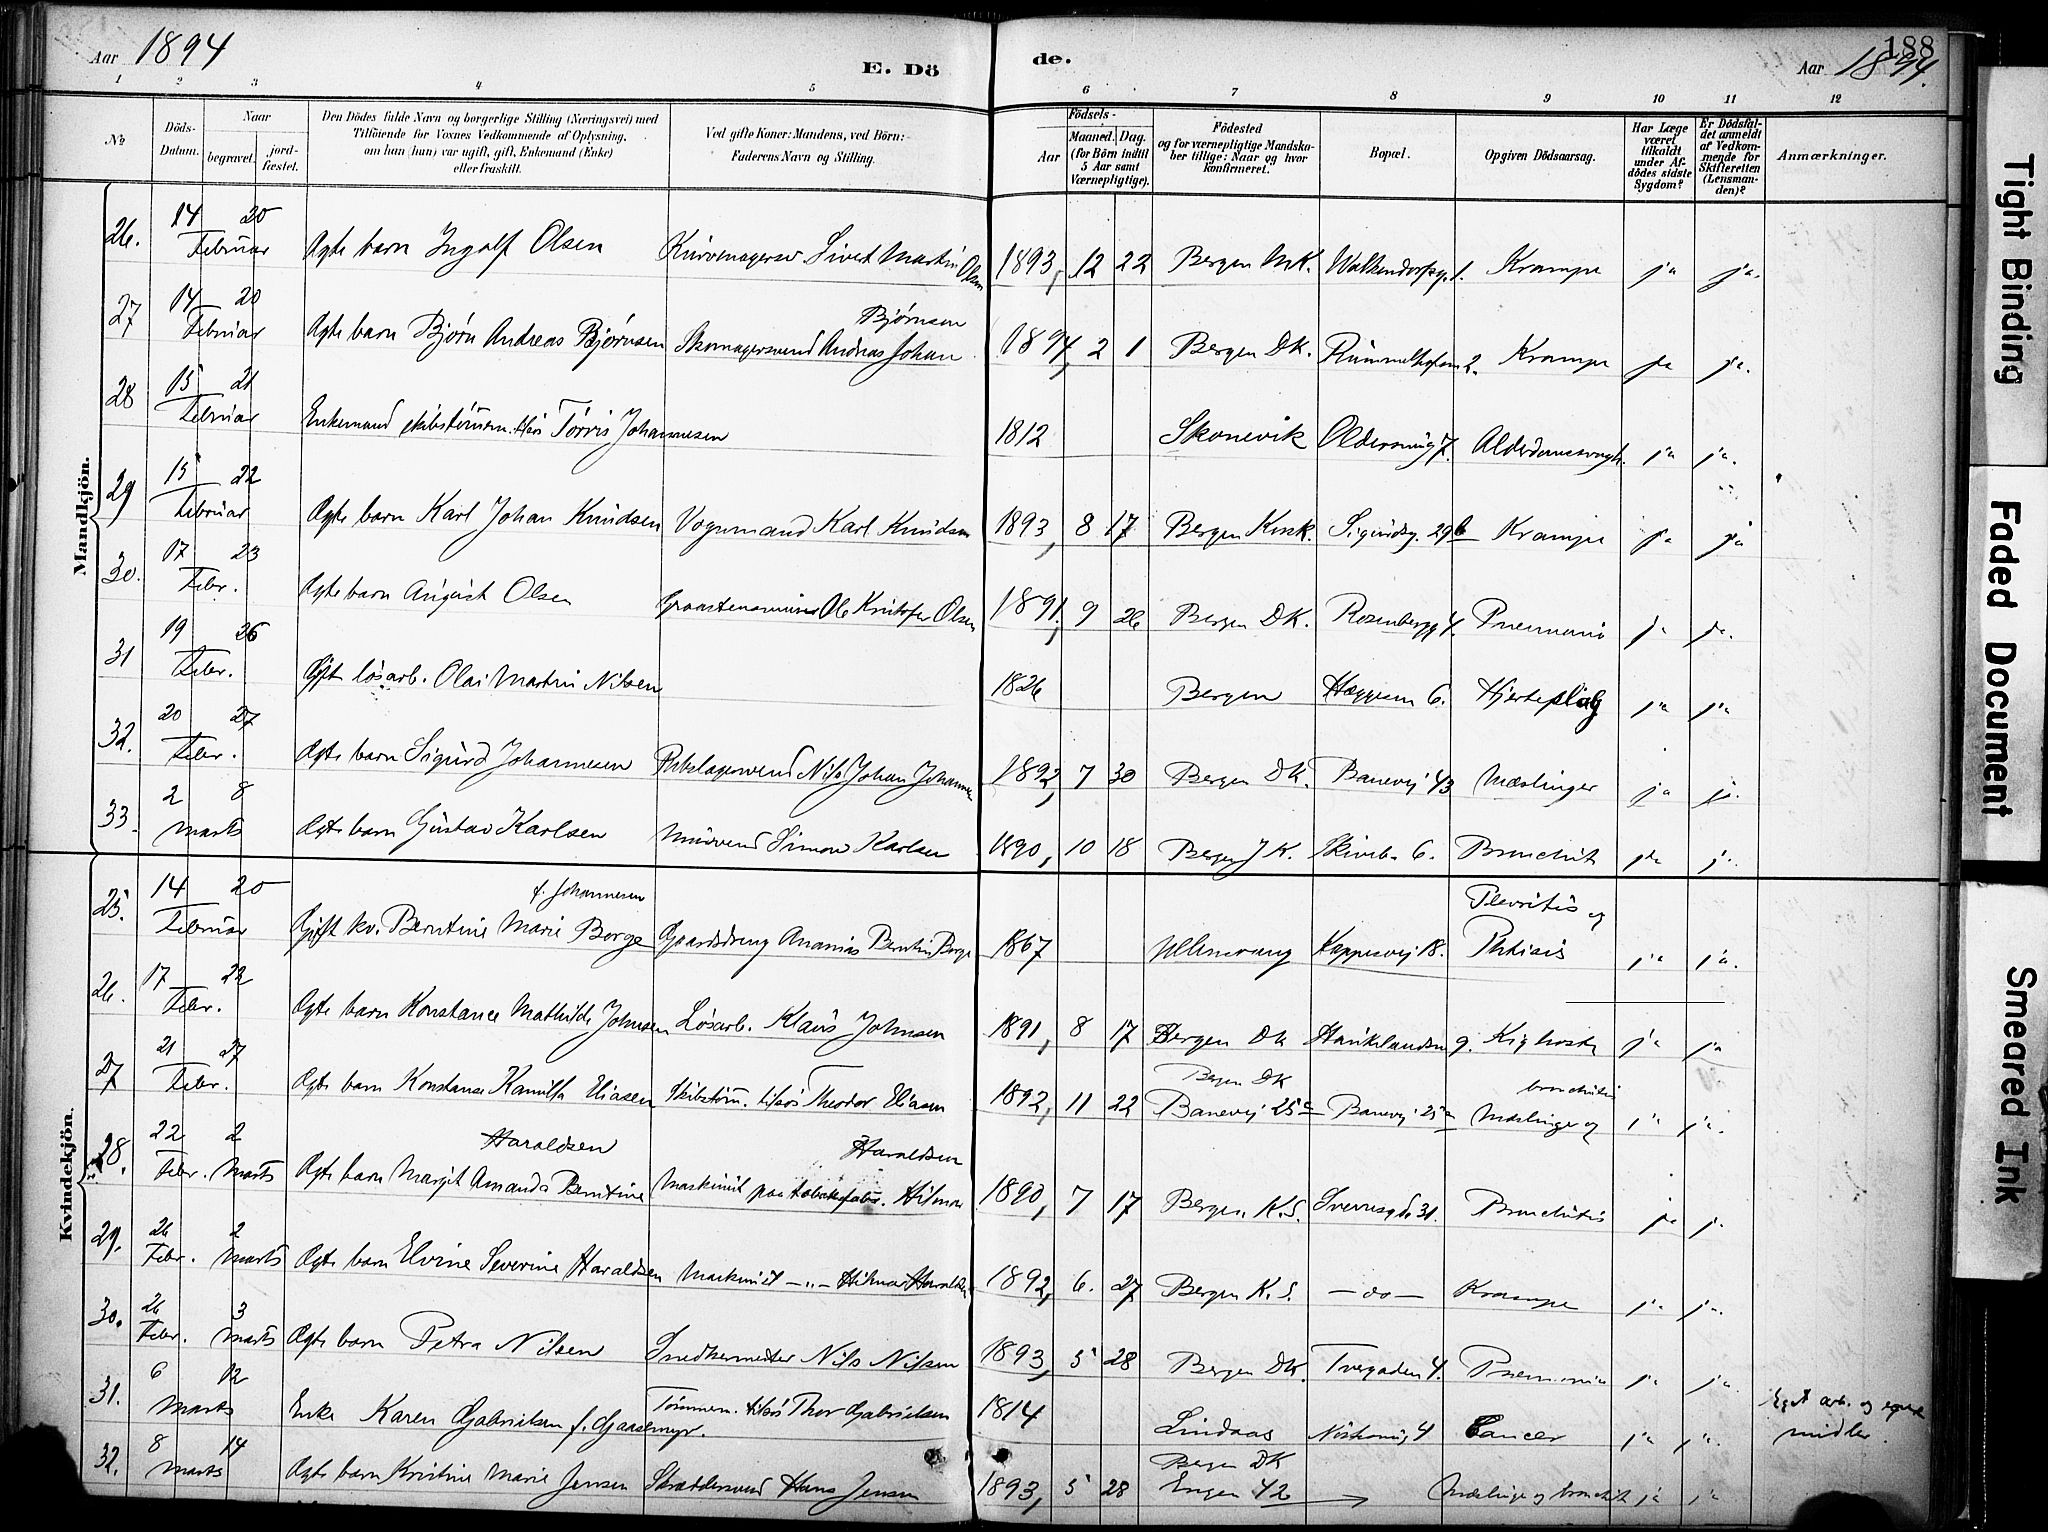 Aar 1894
E. Dö
de.
188
Aar 1894.
1 2 3 4 5 6 7 8 9 10 11 12
№
Döds-Datum.
Naar
begravet.
jord-fæstet.
Den Dödes fulde Navn og borgerlige Stilling (Næringsvei) med
Tilföiende for Voxnes Vedkommende af Oplysning,
om han (hun) var ugift, gift, Enkemand (Enke)
eller fraskilt.
Ved gifte Koner: Mandens, ved Börn:
Faderens Navn og Stilling.
Födsels-
Aar
Maaned.
Dag.
(for Börn indtil
5 Aar samt
Værnepligtige).
Födested
og for værnepligtige Mandska-
ber tillige: Naar og hvor
konfirmeret.
Bopæl.
Opgiven Dödsaarsag.
Har Læge
været
tilkaldt
under Af-
dödes sidste
Sygdom?
Er Dödsfal-
det anmeldt
af Vedkom-
mende for
Skifteretten
(Lensman-
den)?
Anmærkninger.
Mandkjön.
26. 14 20 Februar Ægte barn Ingolf Olsen Kurvemagersv Sivert Martin Olsen 1893, 12 22 Bergen MK. Walkendorfsg. 1. Krampe ja ja.
27 14 20 Februar Ægte barn Bjørn Andreas Bjørnsen Skomagersvend Andreas Johan Bjørnsen 1894, 2 1 Bergen DK. 2. Krampe ja ja.
28 15 21 Februar Enkemand skibstømm. Tørris Johannesen 1812 Skonevik 7. ja ja.
29 15 22 Februar Ægte barn Karl Johan Knudsen Vognmand Karl Knudsen 1893, 8 17 Bergen Sigurdsg. 29b Krampe ja ja
30. 17 23 Febr. Ægte barn August Olsen Ole Kristofer Olsen 1891, 9 26 Bergen DK. Rosenbergg 4. Pneumoni ja ja.
31 19 26 Febr. Gift løsarb. Olai Martin Nilsen 1826 Bergen 6. Hjerteslag ja ja
32. 20 27 Febr. Ægte barn Sigurd Johannesen Rebslagersvend Nils Johan Johannesen 1892, 7 30 Bergen DK. Banevej 43 Mæslinger ja ja.
33. 2 8 Marts Ægte barn Gustav Karlsen Murvend Simon Karlsen 1890, 10 18 Bergen JK. Skivеb. 6. Bronchit ja ja.
Kvindekjön.
25. 14 20 Februar Gift kv. Berntine Marie Borge f. Johannesen Gaardsdreng Ananias Berntin Borge 1867 Ullensvang 18. Plevritis og Phtisis ja ja.
26. 17 22 Febr. Ægte barn Konstance Mathilde Johnsen Løsarb. Klaus Johnsen 1891, 8 17 Bergen DK Haukelandsv 9. Kighoste ja ja
27 21 27 Febr. Ægte barn Konstanse Kamilla Eliasen Skibstøm. Theodor Eliasen 1892, 11 22 Bergen DK Banevej 25a Banevej 25a Mæslinger og bronchitis ja ja.
28. 22 2 Febr. Marts Ægte barn Margit Amanda Berntine Haraldsen Maskinist paa tobaksfabr. Hilmar Haraldsen 1890, 7 17 Bergen K.S. Sverresgd. 31. Bronchitis ja ja.
29. 26 2 Febr. Marts Ægte barn Elvine Severine Haraldsen Maskinist —„— Hilmar Haraldsen 1892, 6. 27 Bergen K.S. — do — Krampe ja ja.
30. 26 3 Febr. Marts Ægte barn Petra Nilsen Snedkermester Nils Nilsen 1893, 5 28 Bergen DK. Tvergaden 4. Pnemonia ja ja.
31. 6 12 Marts Enke Karen Gabrielsen f. Gaasemyr. Tømmerm. Thor Gabrielsen 1814 Lindaas 4 Cancer ja ja. Eget arb. og egne midler.
32. 8 14 Marts Ægte barn Kristine Marie Jensen Skræddersvend Hans Jensen 1893, 5 28 Bergen DK Engen 42 Mæslinge og bronchit ja ja
Tight Binding
Faded Document
Smeared Ink